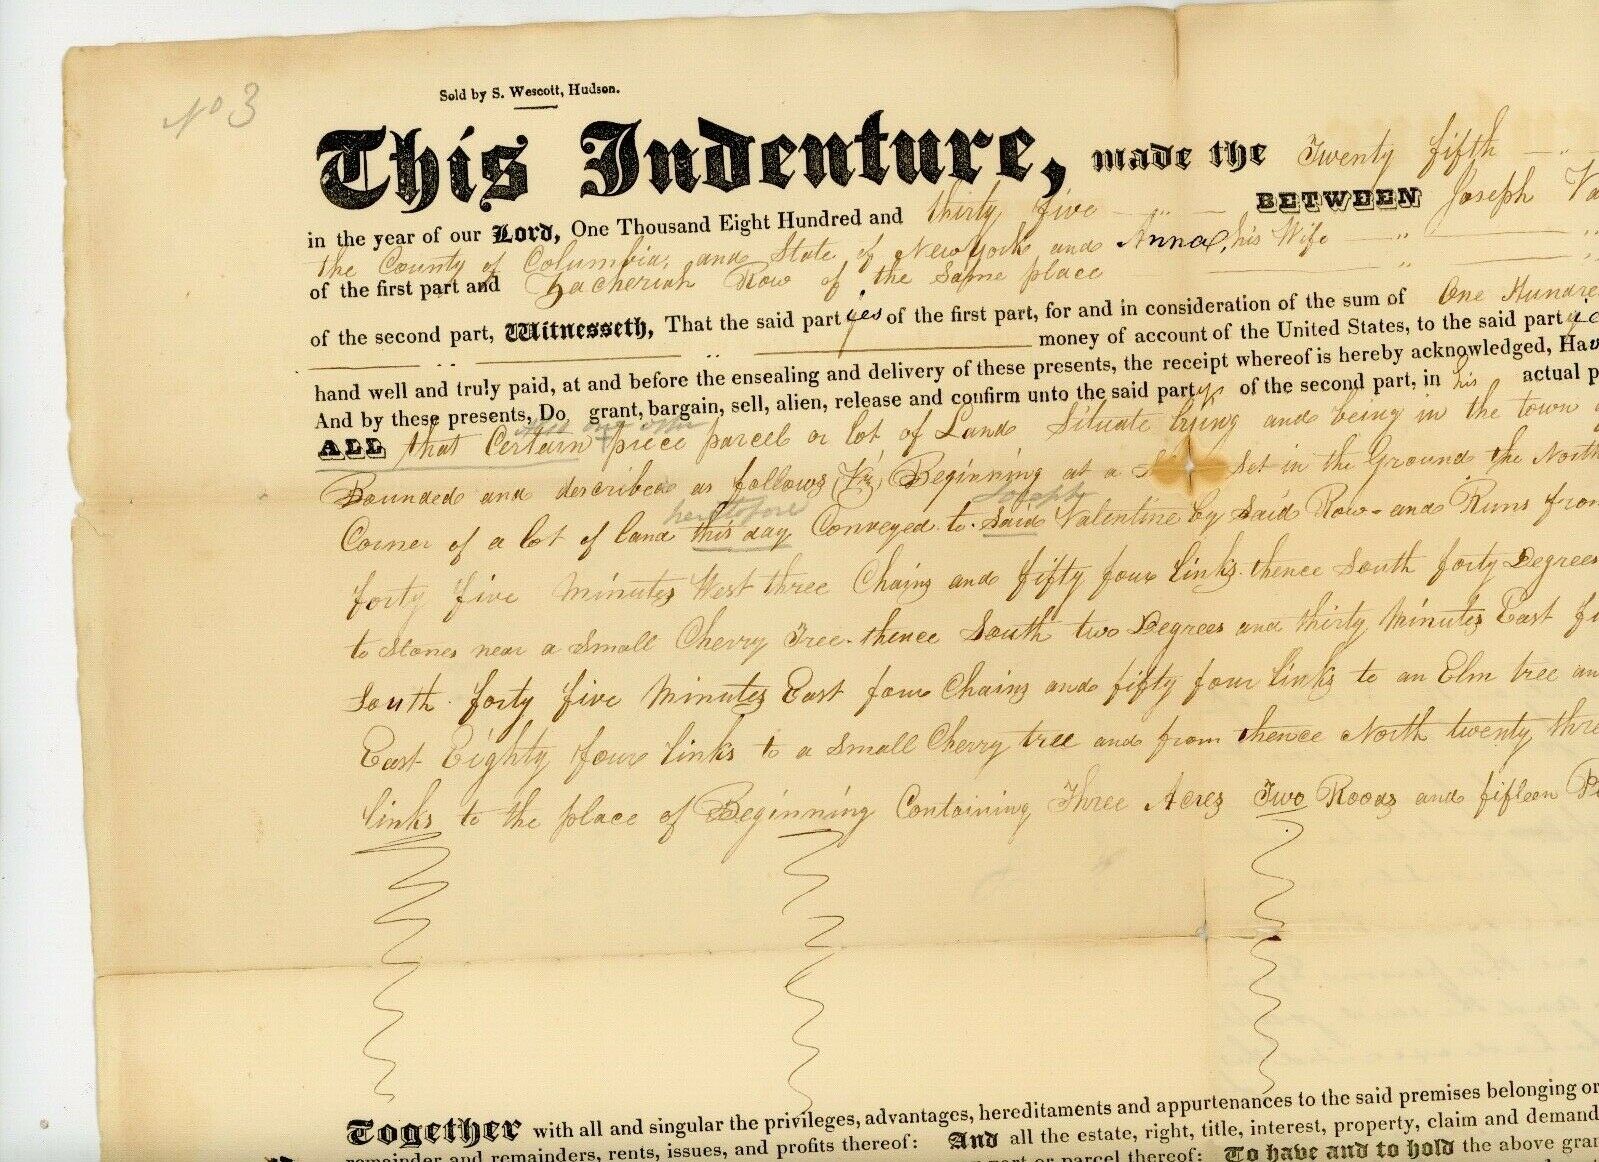 No 3
Sold by S. Wescott, Hudson.
This Indenture, made the Twenty fifth
in the year of our Lord, One Thousand Eight Hundred and thirty five BETWEEN Joseph Va
the County of Columbia, and State of New York and Anna, his Wife
of the first part and Zacheriah Row of the Same place
of the second part, Witnesseth, That the said part ies of the first part, for and in consideration of the sum of One Hundre
money of account of the United States, to the said part
hand well and truly paid, at and before the ensealing and delivery of these presents, the receipt whereof is hereby acknowledged, Hav
And by these presents, Do grant, bargain, sell, alien, release and confirm unto the said party of the second part, in his actual p
ALL that Certain piece parcel or lot of Land Situate lying and being in the town
Bounded and described as follows (Viz) Beginning at a S set in the Ground the North
heretofore Joseph
Corner of a lot of land this day Conveyed to Said Valentine by Said Row and Runs from
forty five Minutes West three Chains and fifty four links thence South forty Degrees
to Stones near a Small Cherry Tree thence South two Degrees and thirty Minutes East
South forty five Minutes East four Chains and fifty four links to an Elm tree an
East Eighty four links to a Small Cherry tree and from thence North twenty thre
links to the place of Beginning Containing Three Acres Two Roods and fifteen P
Together with all and singular the privileges, advantages, hereditaments and appurtenances to the said premises belonging or
remainder and remainders, rents, issues, and profits thereof: And all the estate, right, title, interest, property, claim and demand
part or parcel thereof: To have and to hold the above gran